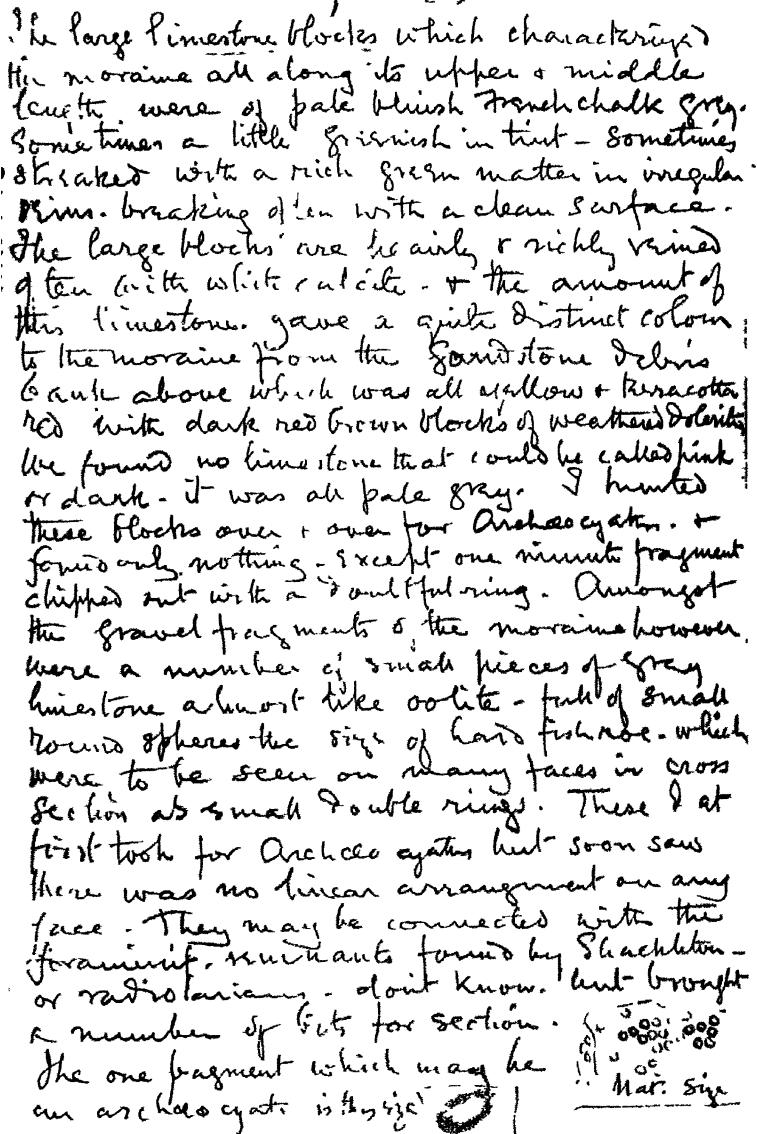 The large limestone blocks which characterized
the moraine all along its upper & middle
length were of pale bluish French chalk gray.
Sometimes a little greenish in tint - sometimes
streaked with a rich green matter in irregular
veins. breaking often with a clean surface.
The large blocks are heavily & richly veined
often with white calcite. & the amount of
this limestone. gave a quite distinct colour
to the moraine from the Sandstone debris
bank above which was all yellow & terracotta
red with dark red brown blocks of weathered dolerite
We found no limestone that could be called pink
or dark - it was all pale gray. I hunted
these blocks over & over for Archaeocyath. &
found only nothing - except one minute fragment
chipped out with a doubtful ring. Amongst
the gravel fragments of the moraine however,
were a number of small pieces of gray
limestone almost like oolite - full of small
round spheres the size of hard fish roe - which
were to be seen on many faces in cross
section as small double rings. These I at
first took for Archaeocyaths but soon saw
there was no linear arrangement on any
face. They may be connected with the
foraminif. remnants found by Shackleton -
or radiolarians - dont know. but brought
a number of bits for section.
The one fragment which may be
an archaeocyath is this size
Nat. Size